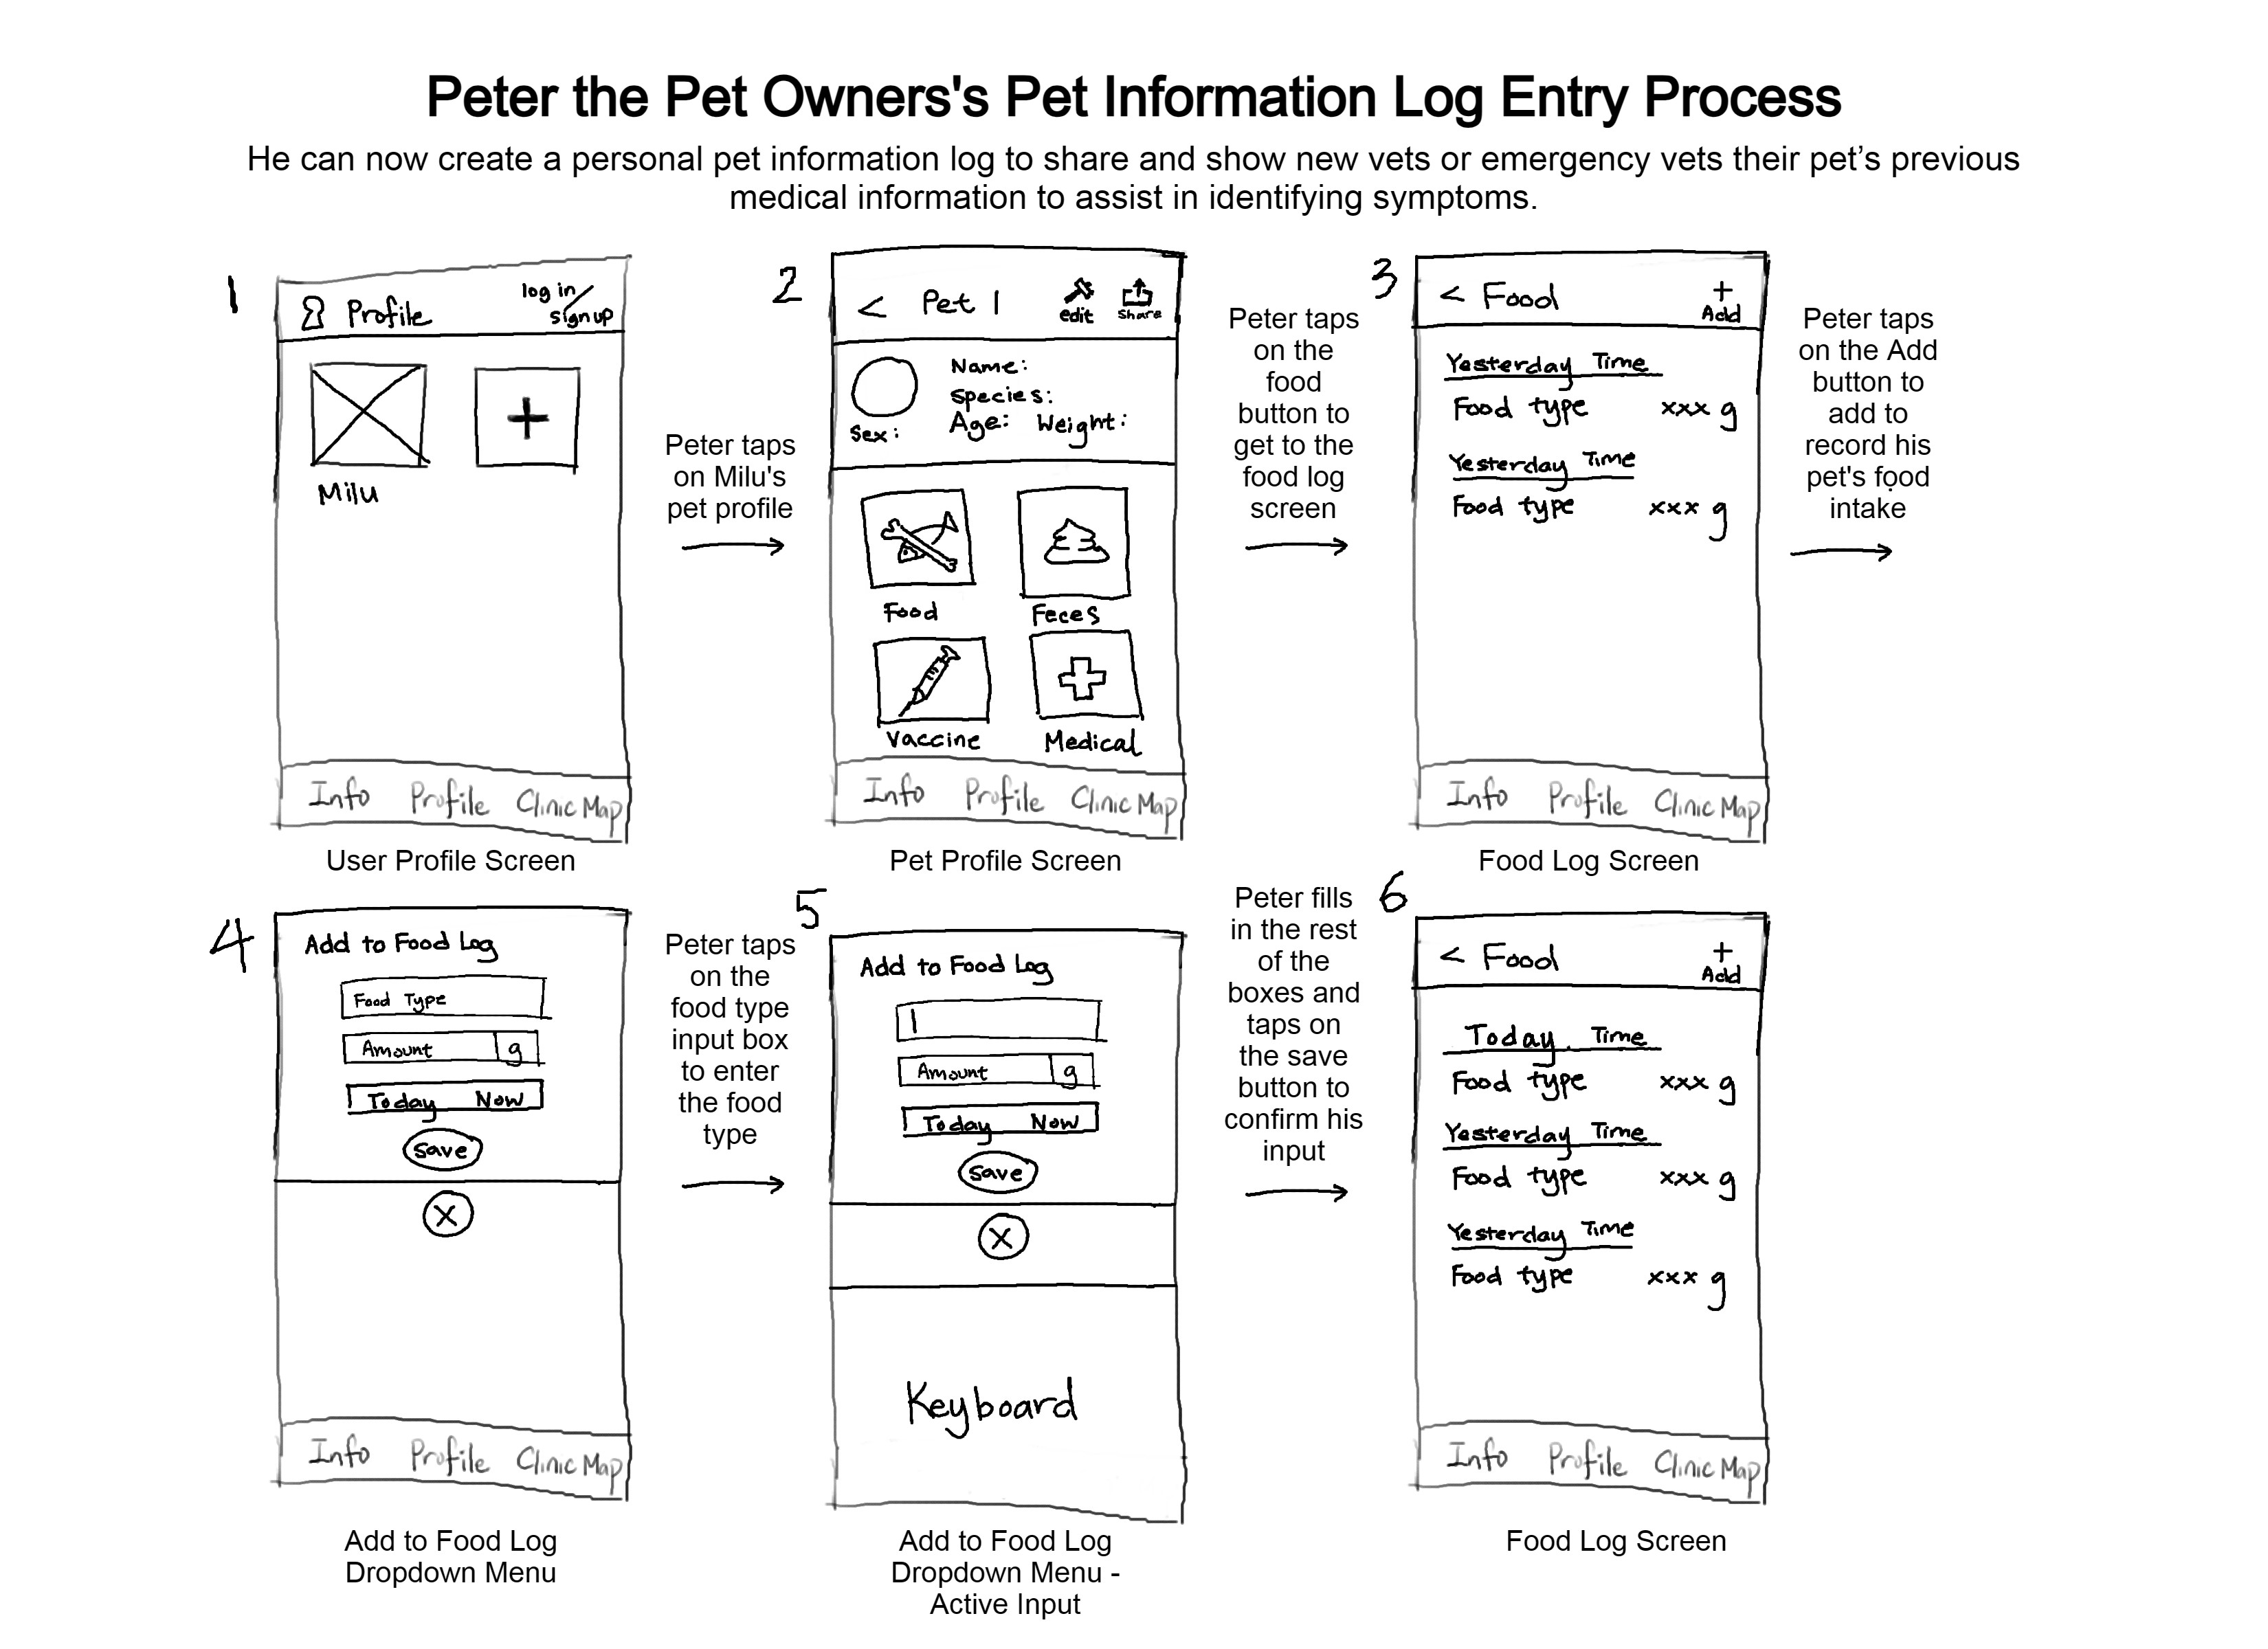 Peter the Pet Owners's Pet Information Log Entry Process
He can now create a personal pet information log to share and show new vets or emergency vets their pet’s previous
medical information to assist in identifying symptoms.
1
Profile
log in/
signup
+
Milu
Info Profile Clinic Map
User Profile Screen
Peter taps
on Milu's
pet profile
2
< Pet 1
edit
share
Name:
Species:
Sex:
Age: Weight:
Food
Feces
Vaccine
Medical
Info Profile Clinic Map
Pet Profile Screen
Peter taps
on the
food
button to
get to the
food log
screen
3
< Food
+
Add
Yesterday Time
Food type xxx g
Yesterday Time
Food type xxx g
Info Profile Clinic Map
Food Log Screen
Peter taps
on the Add
button to
add to
record his
pet's food
intake
4
Add to Food Log
Food Type
Amount g
Today Now
Save
X
Info Profile Clinic Map
Add to Food Log
Dropdown Menu
Peter taps
on the
food type
input box
to enter
the food
type
5
Add to Food Log
Amount g
Today Now
Save
X
Keyboard
Add to Food Log
Dropdown Menu -
Active Input
Peter fills
in the rest
of the
boxes and
taps on
the save
button to
confirm his
input
6
< Food
+
Add
Today Time
Food type xxx g
Yesterday Time
Food type xxx g
Yesterday Time
Food type xxx g
Info Profile Clinic Map
Food Log Screen